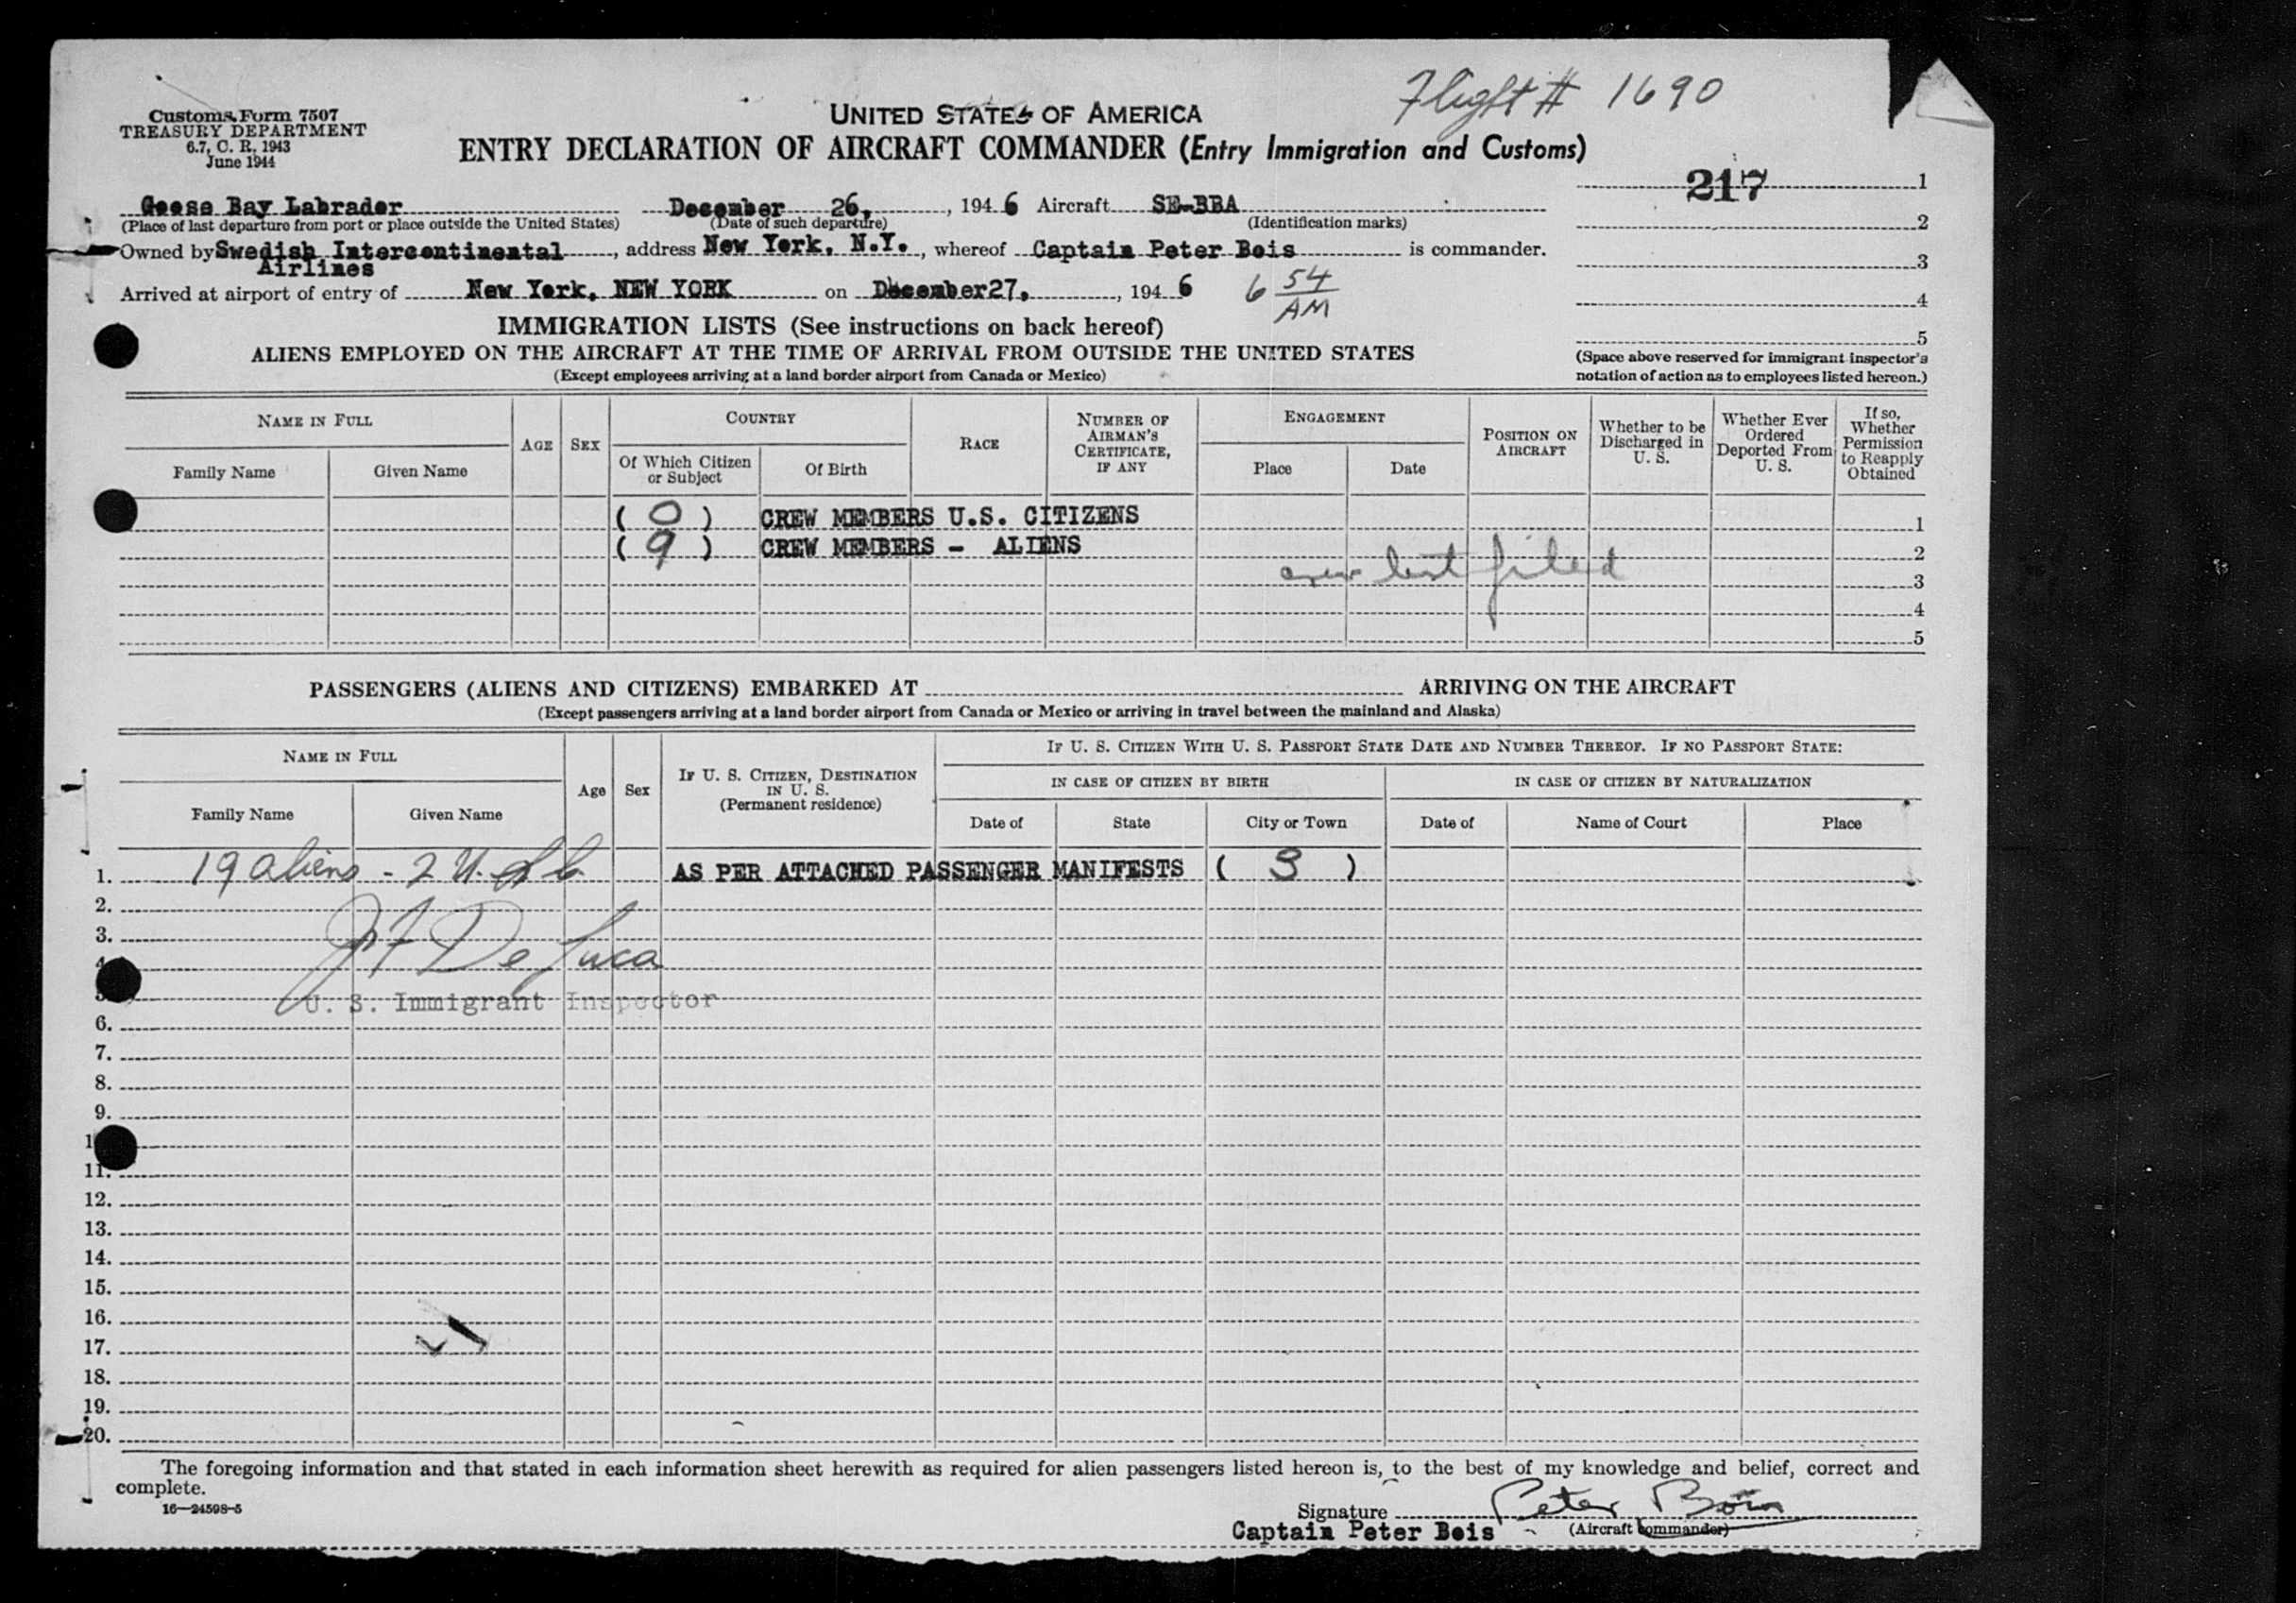 Flight # 1690
Customs Form 7507
TREASURY DEPARTMENT
6.7, C. R. 1943
June 1944
UNITED STATES OF AMERICA
ENTRY DECLARATION OF AIRCRAFT COMMANDER (Entry Immigration and Customs)
217 1
Goose Bay Labrador December 26, , 194 6 Aircraft SE-BBA
(Place of last departure from port or place outside the United States) (Date of such departure) (Identification marks)
2
Owned by Swedish Intercontinental Airlines , address New York, N.Y. , whereof Captain Peter Bois is commander.
3
Arrived at airport of entry of New York, NEW YORK on December 27, , 194 6 6 54 AM
4
IMMIGRATION LISTS (See instructions on back hereof)
5
ALIENS EMPLOYED ON THE AIRCRAFT AT THE TIME OF ARRIVAL FROM OUTSIDE THE UNITED STATES
(Except employees arriving at a land border airport from Canada or Mexico)
(Space above reserved for immigrant inspector's
notation of action as to employees listed hereon.)
NAME IN FULL
Family Name Given Name
AGE SEX
COUNTRY
Of Which Citizen or Subject Of Birth
RACE
NUMBER OF AIRMAN'S CERTIFICATE, IF ANY
ENGAGEMENT
Place Date
POSITION ON AIRCRAFT
Whether to be Discharged in U. S.
Whether Ever Ordered Deported From U. S.
If so, Whether Permission to Reapply Obtained
( 0 ) CREW MEMBERS U.S. CITIZENS 1
( 9 ) CREW MEMBERS - ALIENS 2
crew list filed 3
4
5
PASSENGERS (ALIENS AND CITIZENS) EMBARKED AT ARRIVING ON THE AIRCRAFT
(Except passengers arriving at a land border airport from Canada or Mexico or arriving in travel between the mainland and Alaska)
NAME IN FULL
Family Name Given Name
Age Sex
IF U. S. CITIZEN, DESTINATION IN U. S.
(Permanent residence)
IF U. S. CITIZEN WITH U. S. PASSPORT STATE DATE AND NUMBER THEREOF. IF NO PASSPORT STATE:
IN CASE OF CITIZEN BY BIRTH IN CASE OF CITIZEN BY NATURALIZATION
Date of State City or Town Date of Name of Court Place
1. 19 aliens - 2 U.S.C. AS PER ATTACHED PASSENGER MANIFESTS ( 3 )
2.
3. De Luca
U. S. Immigrant Inspector
6.
7.
8.
9.
11.
12.
13.
14.
15.
16.
17.
18.
19.
20.
The foregoing information and that stated in each information sheet herewith as required for alien passengers listed hereon is, to the best of my knowledge and belief, correct and
complete.
16—24598-5
Signature Peter Bois
Captain Peter Bois (Aircraft commander)